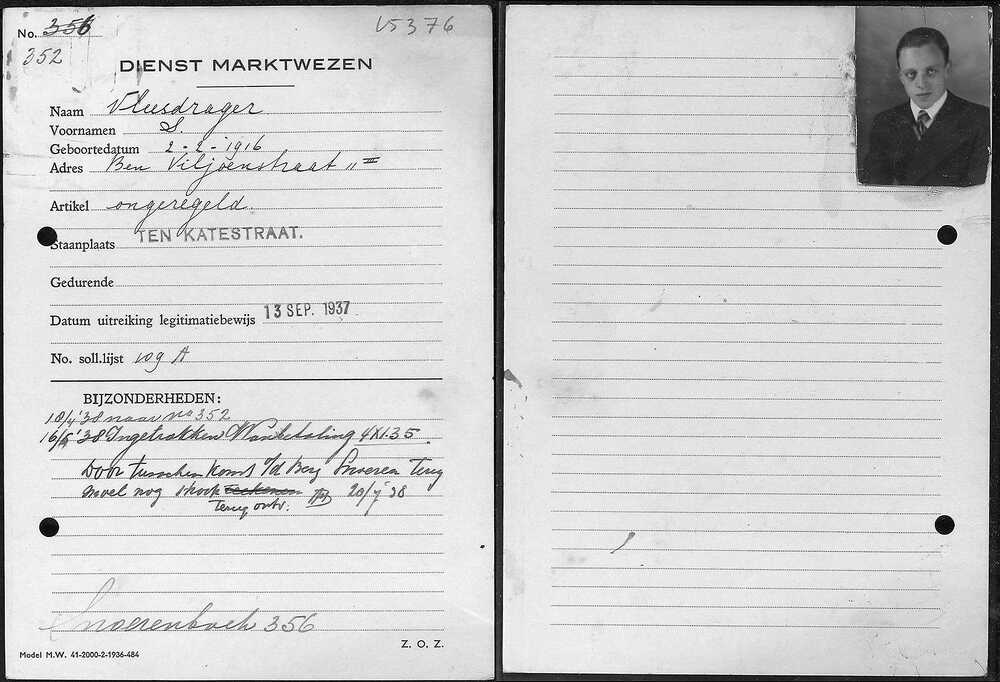 No. 356 V5376
352
DIENST MARKTWEZEN
Naam Vleesdrager
Voornamen S.
Geboortedatum 2-2-1916
Adres Ben Viljoenstraat 11 III
Artikel ongeregeld.
Staanplaats TEN KATESTRAAT.
Gedurende
Datum uitreiking legitimatiebewijs 13 SEP. 1937
No. soll.lijst 109 A
BIJZONDERHEDEN:
18/4 '38 naar no 352
16/5 '38 Ingetrokken Wanbetaling 4X1.35.
Door tusschen komst v/d Berg Terug
Moet nog
Terug ontv. 20/7 '38
356
Model M.W. 41-2000-2-1936-484
Z. O. Z.